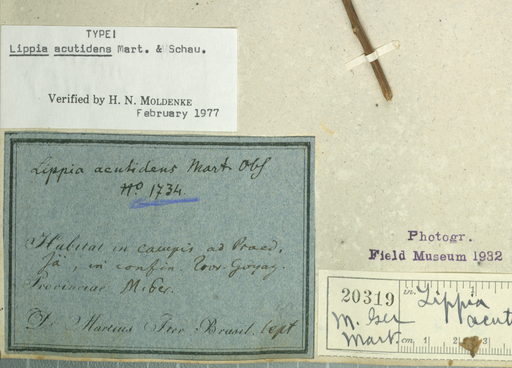 TYPE!
Lippia acutidens Mart. & Schau.
Verified by H. N. MOLDENKE
February 1977
Lippia acutidens Mart Obs
No 1734.
Habitat in campis ad Praed.
in confin. Goyaz.
Provinciae M.
Dr Martius Iter Brasil. Sept
Photogr.
Field Museum 1932
20319
in. Lippia
M. Ger
acut
Mart.
cm. 1 2 3